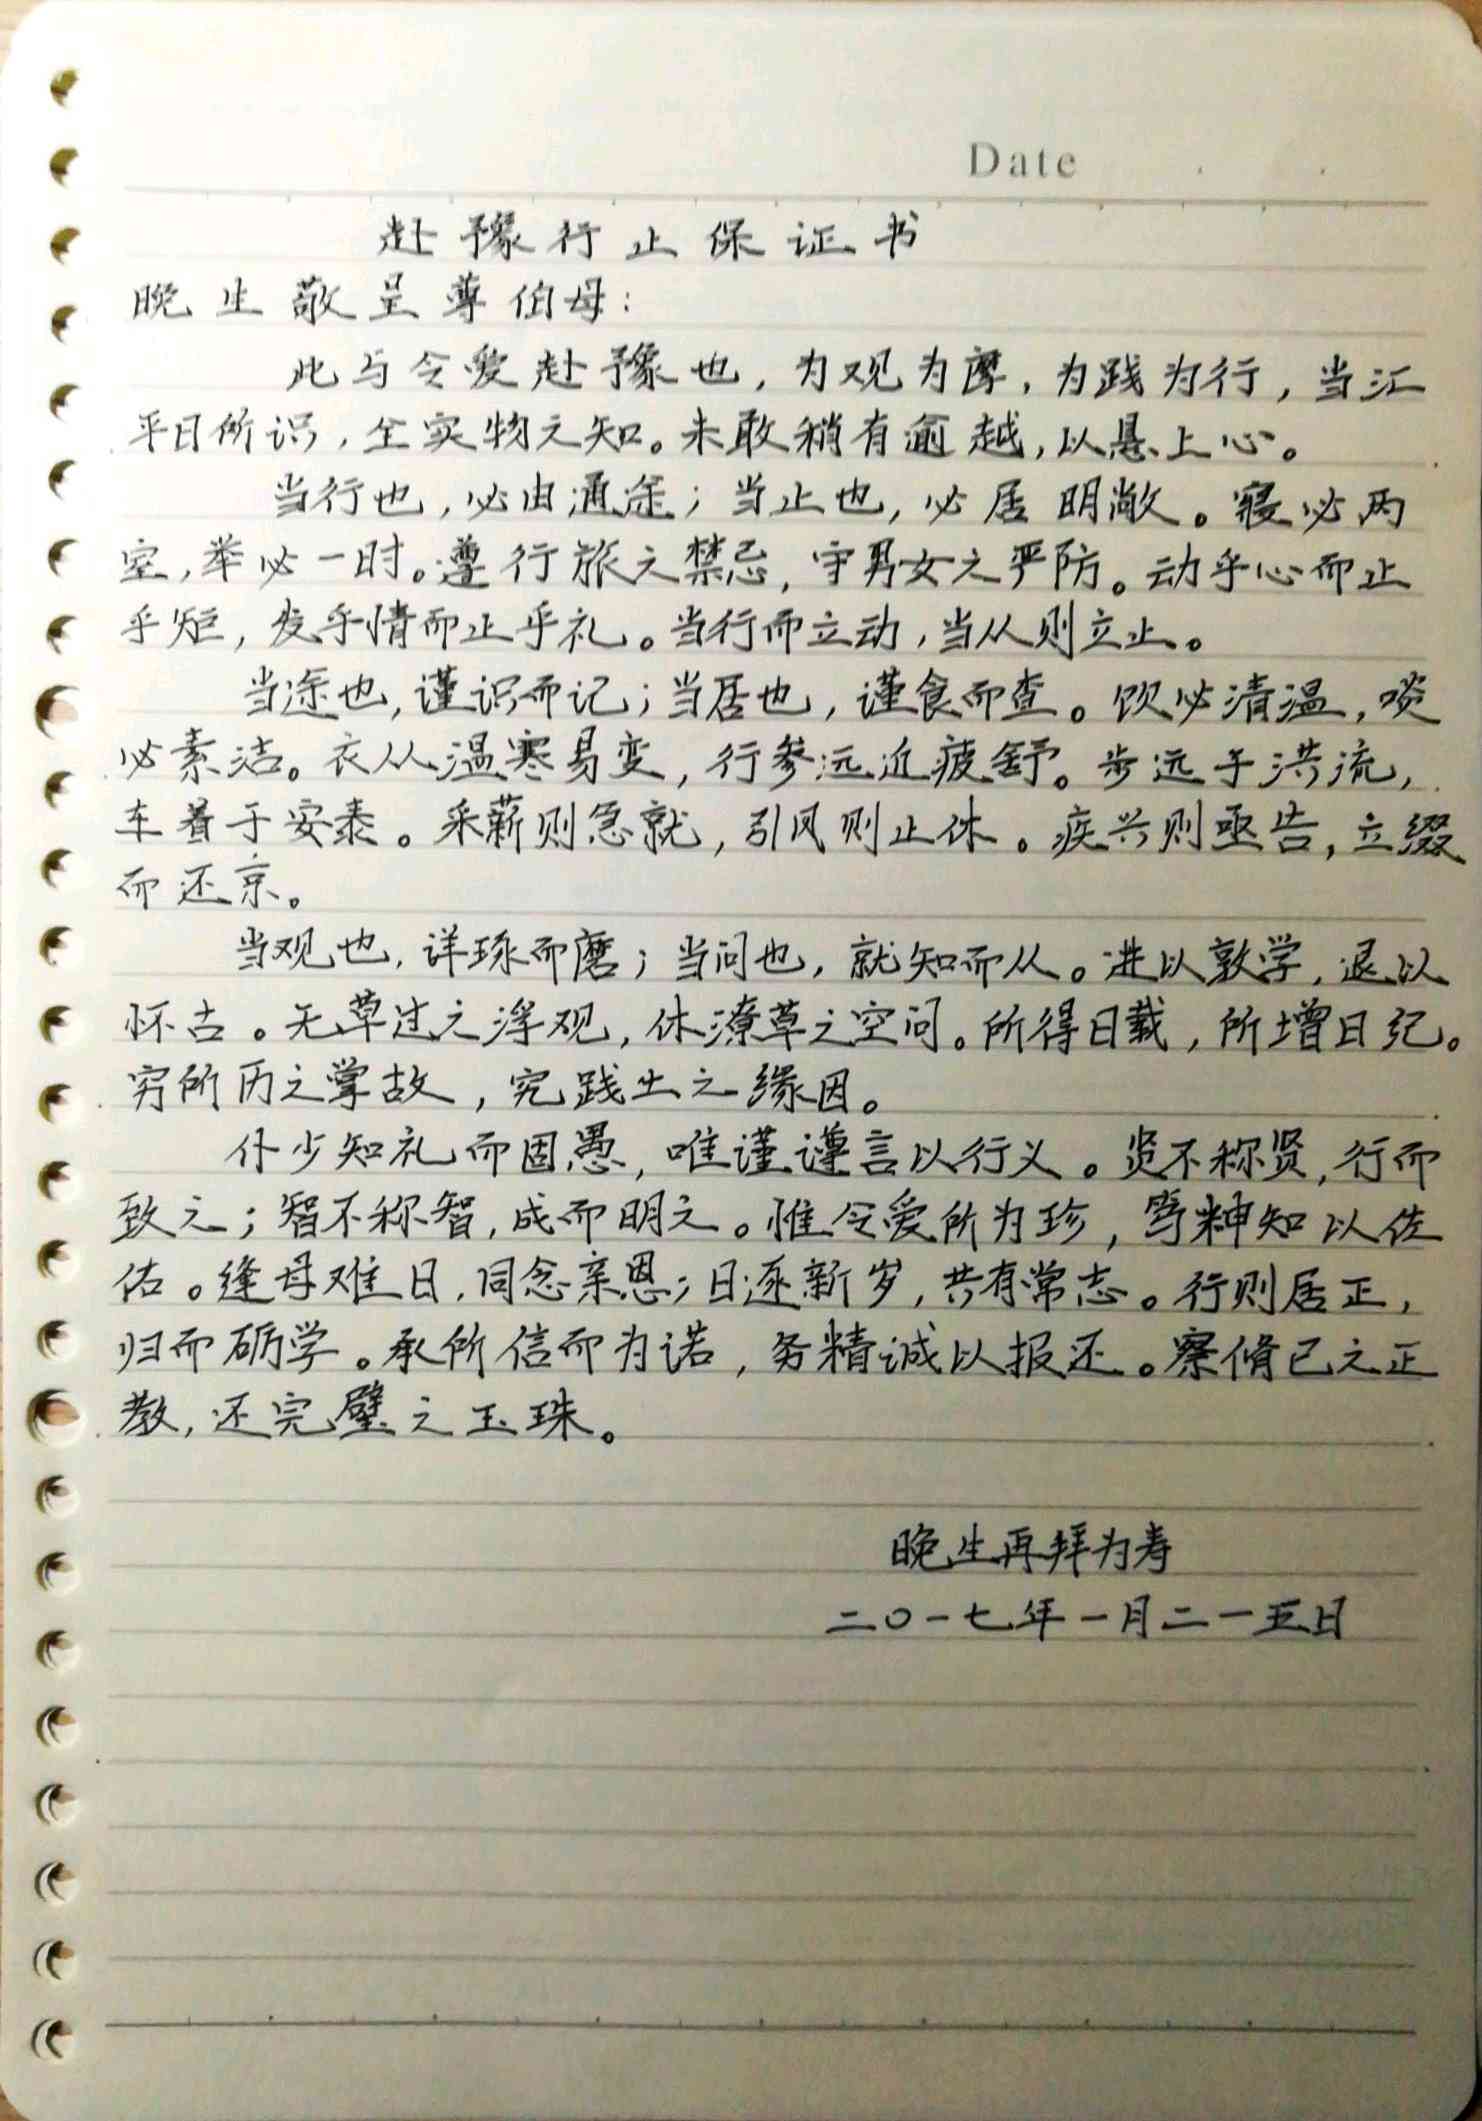 Date
赴豫行止保证书
晚生敬呈尊伯母：
此与令爱赴豫也，为观为摩，为践为行，当汇
平日所识，全实物之知。未敢稍有逾越，以悬上心。
当行也，必由通途；当止也，必居明敞。寝必两
室，举必一时。遵行旅之禁忌，守男女之严防。动乎心而止
乎矩，发乎情而止乎礼。当行而立动，当从则立止。
当途也，谨识而记；当居也，谨食而查。饮必清温，啖
必素洁。衣从温寒易变，行参远近疲舒。步远于洪流，
车着于安泰。采薪则急就，引风则止休。疾兴则亟告，立缀
而还京。
当观也，详琢而磨；当问也，就知而从。进以敦学，退以
怀古。无草过之浮观，休潦草之空问。所得日载，所增日纪。
穷所历之掌故，究践出之缘因。
仆少知礼而固愚，唯谨谨言以行义。贤不称贤，行而
致之；智不称智，成而明之。惟令爱所为珍，穹神知以佐
佑。逢母难日，同念亲恩；日逐新岁，共有常志。行则居正，
归而砺学。承所信而为诺，务精诚以报还。察脩己之正
教，还完璧之玉珠。
晚生再拜为寿
二〇一七年一月二十五日